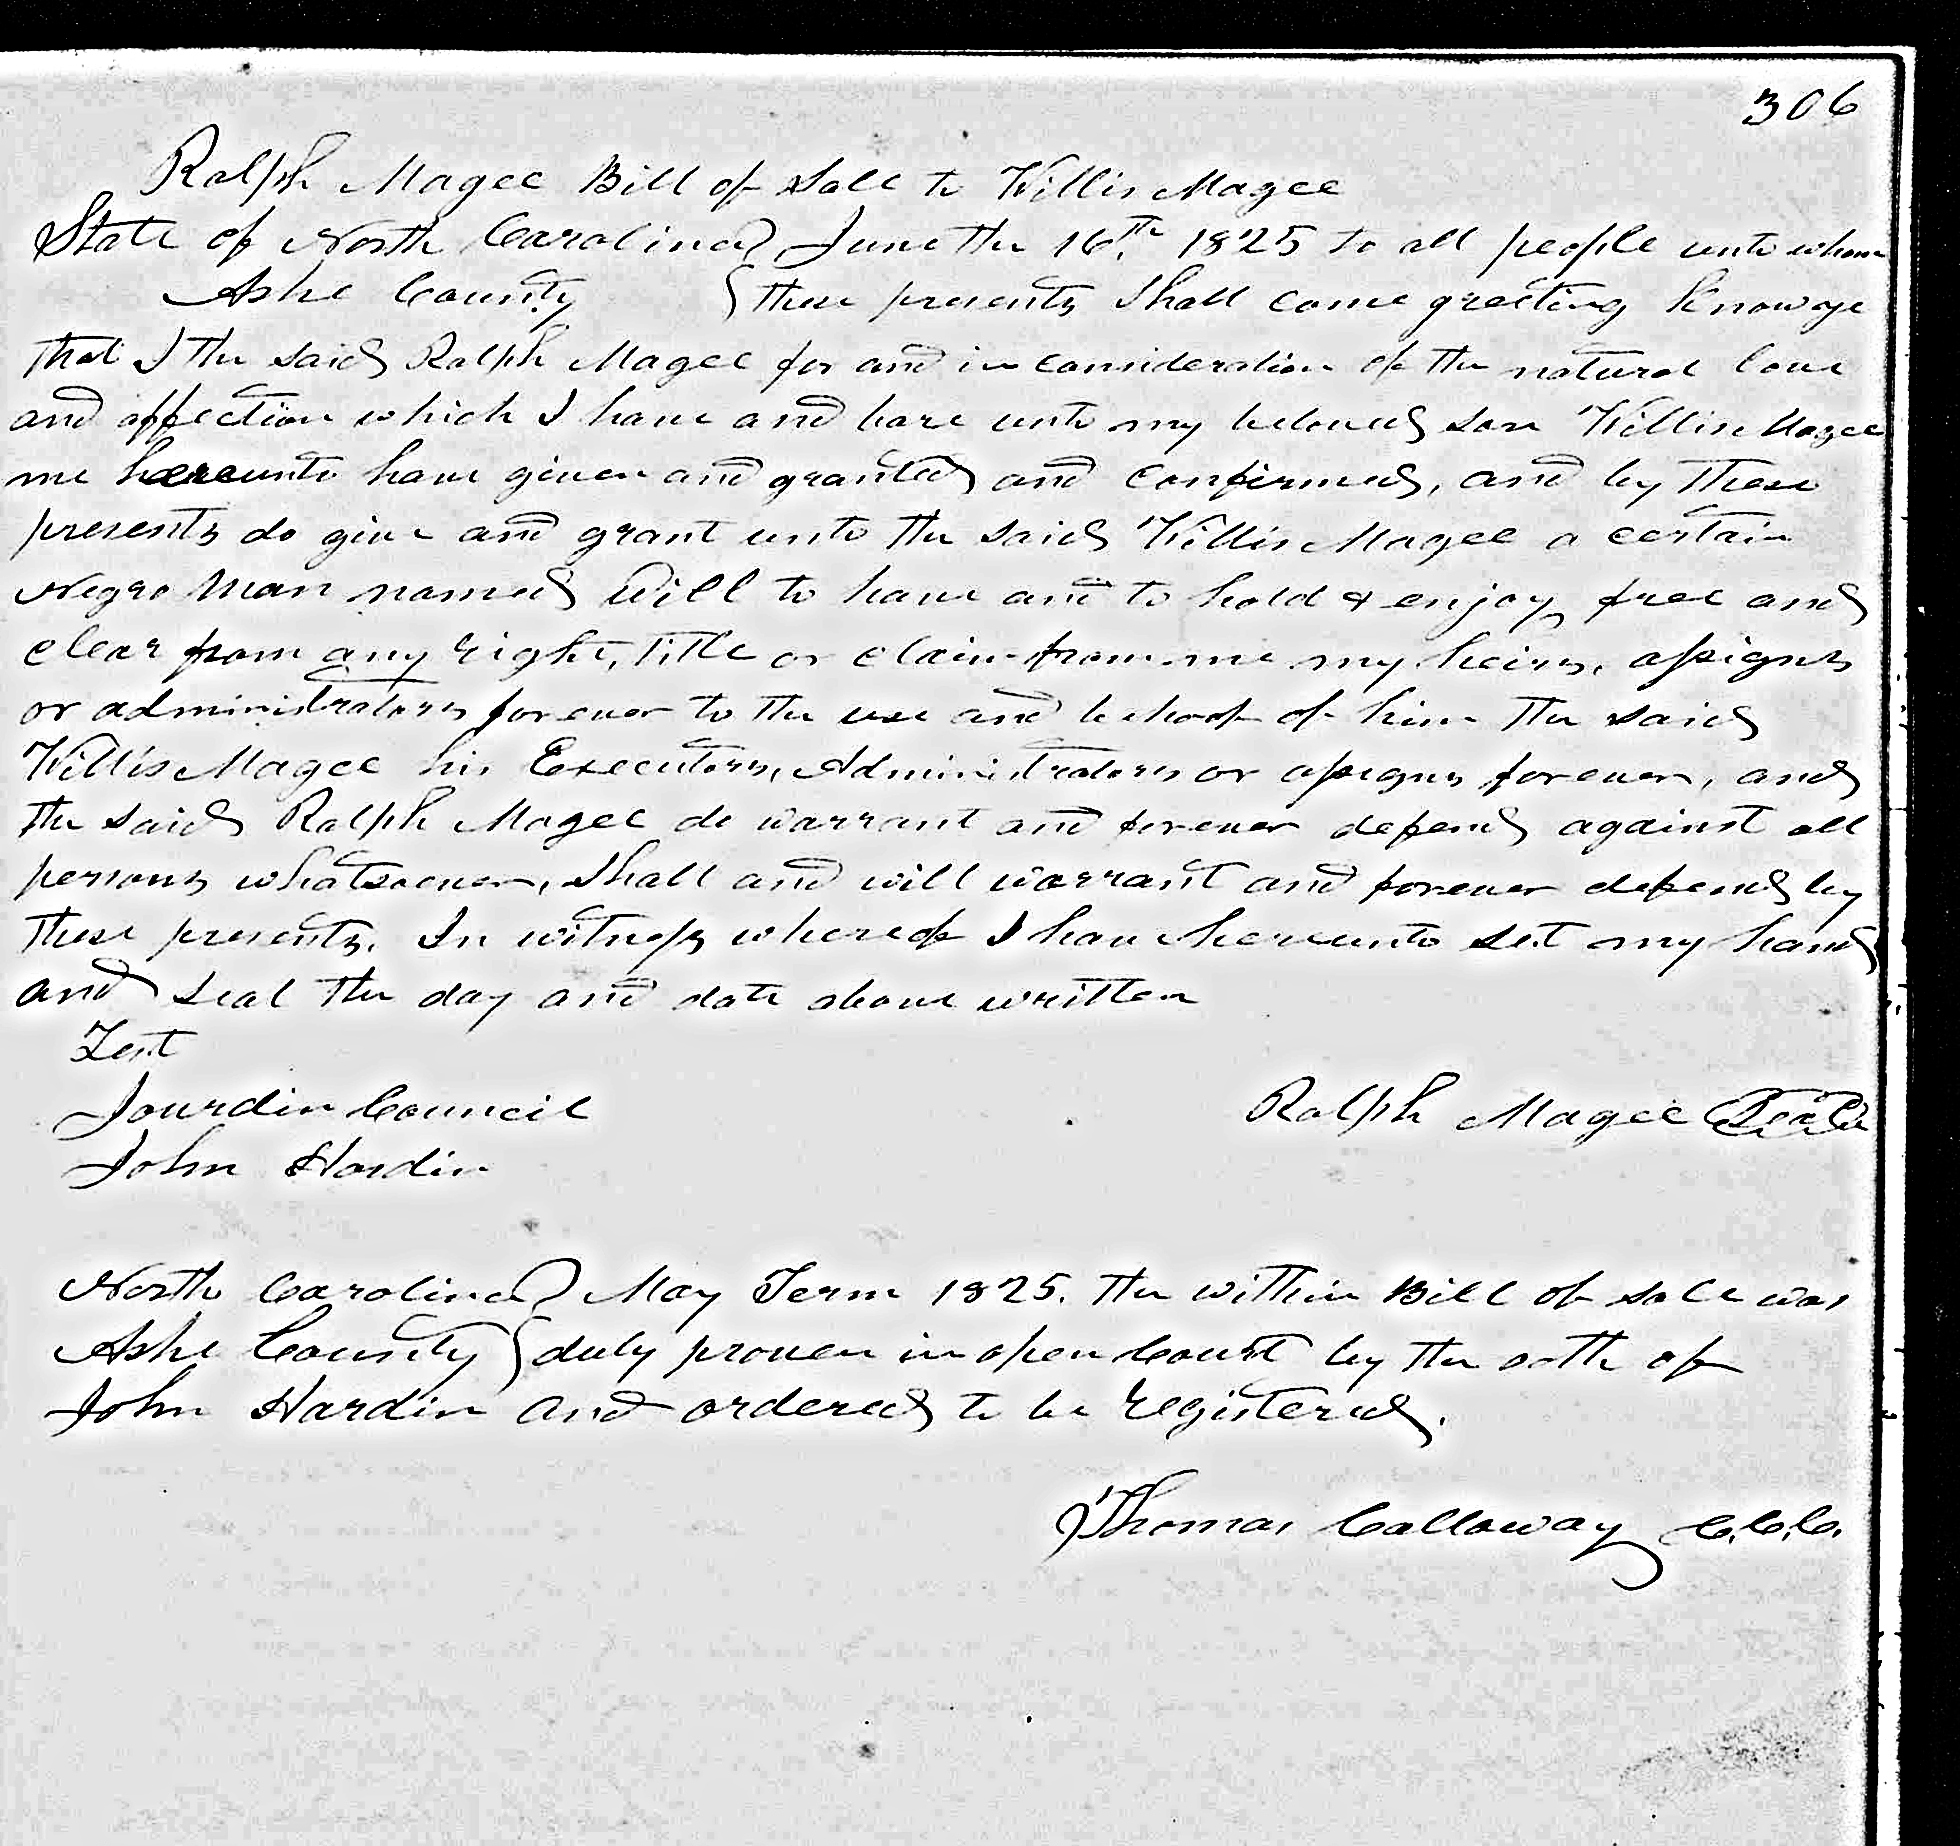 306
Ralph Magee Bill of Sale to Willis Magee
State of North Carolina } June the 16th. 1825 to all people unto whom
Ashe County } these presents Shall come greeting Know ye
that I the said Ralph Magee for and in consideration of the natural love
and affection which I have and bare unto my beloved son Willis Magee
me hereunto have given and granted and confirmed, and by these
presents do give and grant unto the said Willis Magee a certain
Negro Man named Will to have and to hold & enjoy free and
clear from any right, title or claim from me my heirs, assigns
or administrators forever to the use and behoof of him the said
Willis Magee his Executors, Administrators or assigns forever, and
the said Ralph Magee do warrant and forever defend against all
persons whatsoever, Shall and will warrant and forever defend by
these presents. In witness whereof I have hereunto set my hand
and seal the day and date above written
Test
Jourdin Council
Ralph Magee Seal
John Hardin
North Carolina } May Term 1825. the within Bill of sale was
Ashe County } duly proven in open Court by the oath of
John Hardin and ordered to be registered.
Thomas Calloway C.C.C.